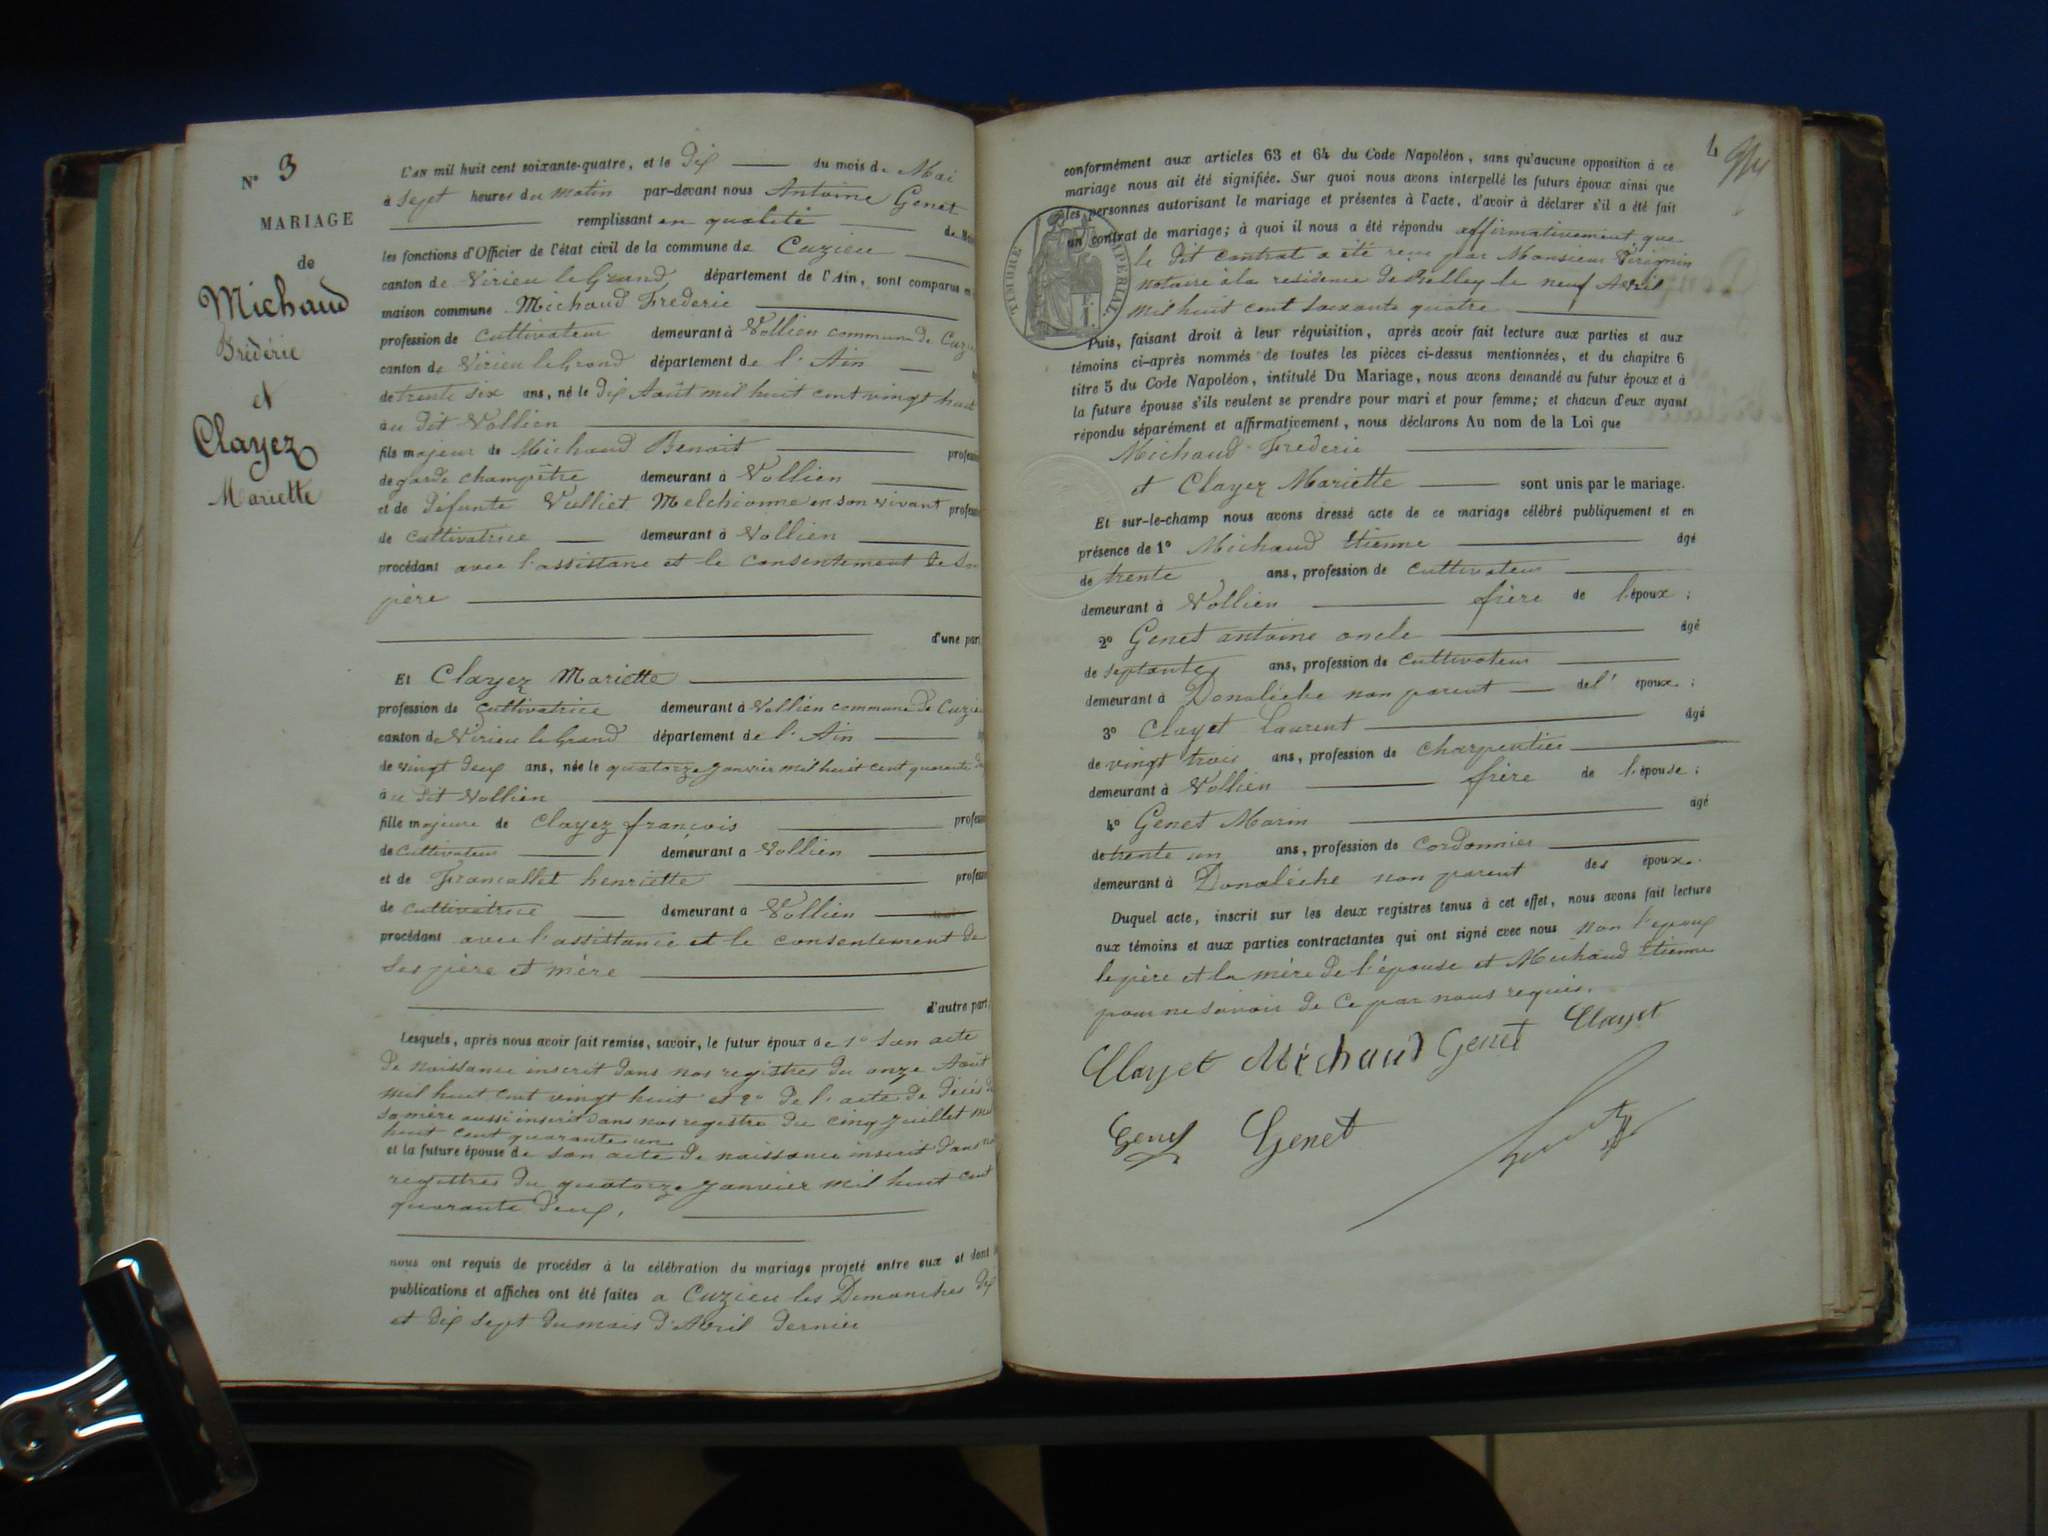 N° 3
MARIAGE
de
Michaud
Frédéric
et
Clayez
Mariette
L'AN mil huit cent soixante-quatre, et le Dix du mois de Mai
à Sept heures du matin par-devant nous Antoine Genet
remplissant en qualité de
les fonctions d'Officier de l'état civil de la commune de Cuzieu
canton de Virieu le Grand département de l'Ain, sont comparus en
maison commune Michaud Frederic
profession de Cultivateur demeurant à Vollien commune de Cuzieu
canton de Virieu le Grand département de l'Ain
de trente six ans, né le Dix Août mil huit cent vingt huit
au dit Vollien
fils majeur de Michaud Benoit profession
de garde champêtre demeurant à Vollien
et de défunte Vulliet Melchionne en son vivant profession
de Cultivatrice demeurant à Vollien
procédant avec l'assistance et le consentement de son
père
d'une part
Et Clayez Mariette
profession de Cultivatrice demeurant à Vollien commune de Cuzieu
canton de Virieu le Grand département de l'Ain
de vingt deux ans, née le quatorze Janvier mil huit cent quarante deux
au dit Vollien
fille majeure de Clayez françois profession
de Cultivateur demeurant à Vollien
et de Francallet henriette profession
de Cultivatrice demeurant à Vollien
procédant avec l'assistance et le consentement de
Ses père et mère
d'autre part
Lesquels, après nous avoir fait remise, savoir, le futur époux de 1° Son acte
de naissance inscrit dans nos registres du onze Août
mil huit cent vingt huit et 2° de l'acte de décès de
sa mère aussi inscrit dans nos registre du cinq Juillet mil
huit cent quarante un
et la future épouse de son acte de naissance inscrit dans nos
registres du quatorze Janvier mil huit cent
quarante Deux,
nous ont requis de procéder à la célébration du mariage projeté entre eux et dont
publications et affiches ont été faites a Cuzieu les Dimanches dix
et dix Sept du mois d'Avril dernier
4
conformément aux articles 63 et 64 du Code Napoléon, sans qu'aucune opposition à ce
mariage nous ait été signifiée. Sur quoi nous avons interpellé les futurs époux ainsi que
les personnes autorisant le mariage et présentes à l'acte, d'avoir à déclarer s'il a été fait
un contrat de mariage; à quoi il nous a été répondu affirmativement que
le dit contrat a été reçu par Monsieur
notaire à la residence de Belley le neuf Avril
mil huit cent soixante quatre
TIMBRE IMPERIAL
Puis, faisant droit à leur réquisition, après avoir fait lecture aux parties et aux
témoins ci-après nommés de toutes les pièces ci-dessus mentionnées, et du chapitre 6
titre 5 du Code Napoléon, intitulé Du Mariage, nous avons demandé au futur époux et à
la future épouse s'ils veulent se prendre pour mari et pour femme; et chacun d'eux ayant
répondu séparément et affirmativement, nous déclarons Au nom de la Loi que
Michaud Frederic
et Clayez Mariette sont unis par le mariage.
Et sur-le-champ nous avons dressé acte de ce mariage célébré publiquement et en
présence de 1° Michaud Etienne âgé
de trente ans, profession de Cultivateur
demeurant à Vollien frère de l'époux;
2° Genet antoine oncle âgé
de septante ans, profession de Cultivateur
demeurant à Donalèche non parent de l' époux;
3° Clayet Laurent âgé
de vingt trois ans, profession de Charpentier
demeurant à Vollien frère de l'épouse;
4° Genet Marin âgé
de trente un ans, profession de Cordonnier
demeurant à Donalèche non parent des époux.
Duquel acte, inscrit sur les deux registres tenus à cet effet, nous avons fait lecture
aux témoins et aux parties contractantes qui ont signé avec nous non l'époux
le père et la mère de l'épouse et Michaud Etienne
pour ne savoir de Ce par nous requis.
Clayet Michaud Genet Clayet
Genet Genet